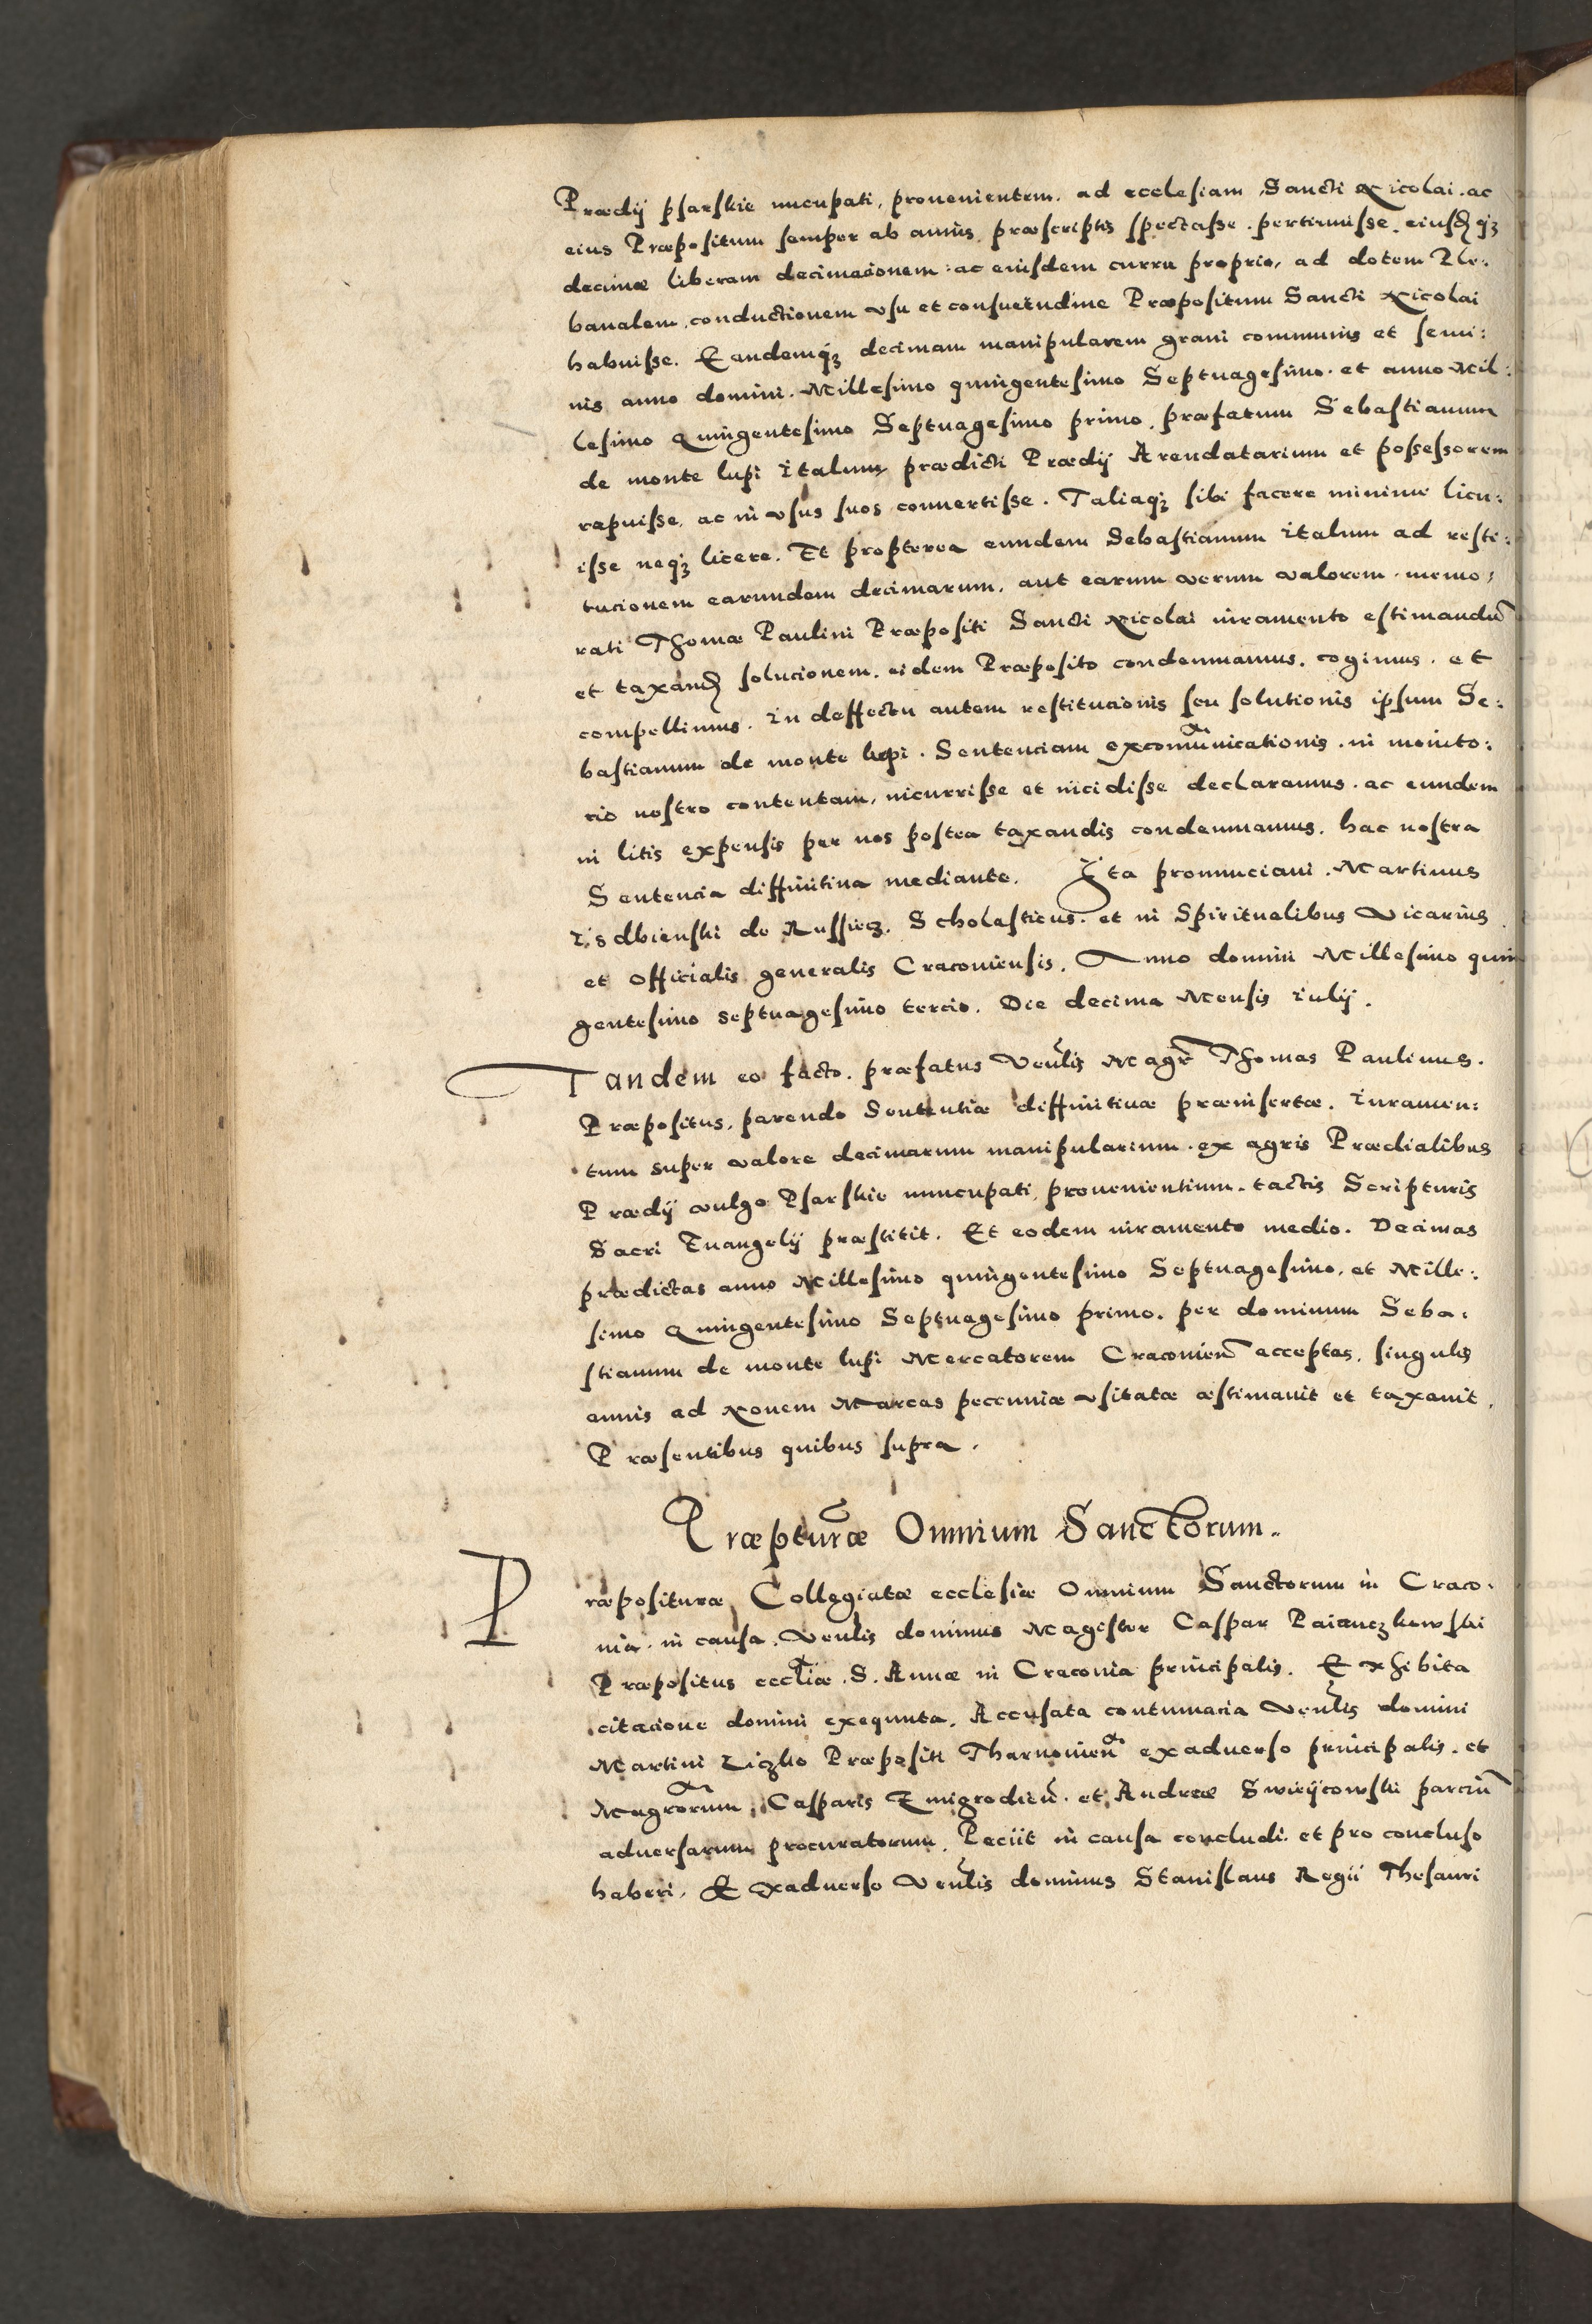 Prædij psarskie nucupati, prouenientem. ad ecclesiam Sancti Nicolai. ac
eius Præpositum semper ab annis præscriptis spectasse. pertinuisse. eiusdqȝ
decimæ liberam decimacionem. ac eiusdem curru proprio, ad dotem Ple:
banalem. conductionem vsu et consuetudine Præpositum Sancti Nicolai
habuisse. Eandemqȝ decimam manipularem grani communis et semi:
nis anno domini. Millesimo quingentesimo Septuagesimo. et anno Mil:
lesimo Quingentesimo Septuagesimo primo. præfatum Sebastianum
de monte lupi Italum, prædicti Prædij Arendatarium et possessorem
rapuisse. ac in vsus suos conuertisse. Taliaqȝ sibi facere minime licu:
isse neqȝ licere. Et propterea eundem Sebastianum Italum ad resti:
tucionem earundem decimarum. aut earum verum valorem. memo:
rati Thomæ Paulini Præpositi Sancti Nicolai iuramento estimandū
et taxand solucionem. eidem Præposito condemnamus. cogimus. et
compellimus. In deffectu autem restitucionis seu solutionis ipsum Se:
bastianum de monte lupi. Sentenciam excom̃unicationis. in monito:
rio nostro contentam, incurrisse et incidisse declaramus. ac eundem
in litis expensis per nos postea taxandis condemnamus. hac nostra
Sentencia diffinitiua mediante. Ita pronunciaui. Martinus
Izdbienski de Russiecz. Scholasticus. et in Spiritualibus Vicarius
et Officialis generalis Cracouiensis. Anno domini Millesimo quin
gentesimo septuagesimo tercio. Die decima Mensis Iulij.
Tandem eo facto. præfatus Venlis Magr̃ Thomas Paulinus.
Præpositus. parendo Sententiæ diffinitiuæ præinsertæ. Iuramen:
tum super valore decimarum manipularium. ex agris Prædialibus
Prædij vulgo Psarskie nuncupati prouenientium. tactis Scripturis
Sacri Euangelij præstitit. Et eodem iuramento medio. Decimas
prædictas anno Millesimo quingentesimo Septuagesimo. et Mille:
simo Quingentesimo Septuagesimo primo. per dominum Seba:
stianum de monte lupi Mercatorem Cracouien̄ acceptas. singulis
annis ad Nouem Marcas pecuniæ vsitatæ æstimauit et taxauit.
Præsentibus quibus supra.
Præpturæ Omnium Sanctorum.
Præpositure Collegiatæ ecclesiæ Omnium Sanctorum in Craco.
uia. in causa. Venlis dominus Magister Caspar Paianczkowski
Præpositus eccliæ. S. Annæ in Cracouia principalis. Exhibita
citacione domini exequuta. Accusata contumacia Venlis domini
Martini Liczko Præpositi Tharnouien̄ exaduerso principalis. et
Magrorum Casparis Zmigrodien̄. et Andreæ Swirijcowski parciū
aduersarum procuratorum. Peciit in causa concludi. et pro concluso
haberi. Exaduerso Venlis dominus Stanislaus Regii Thesauri